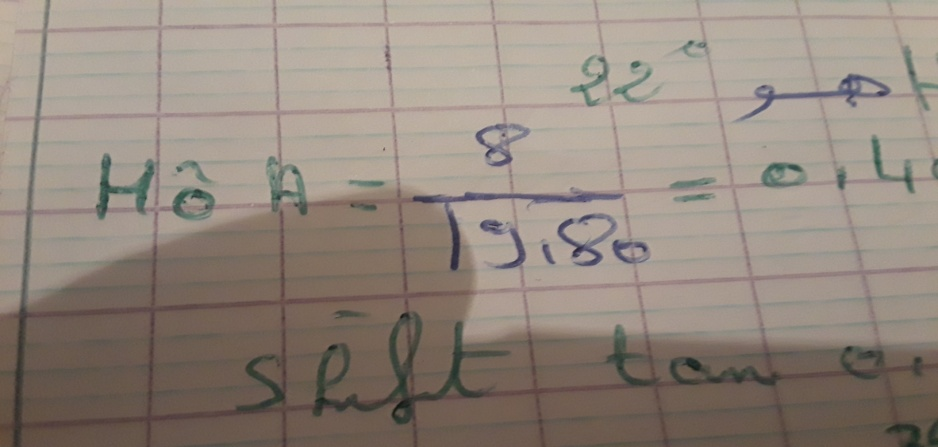 22°
HÔA = 8/19,80 = 0,4
shift tan 0,